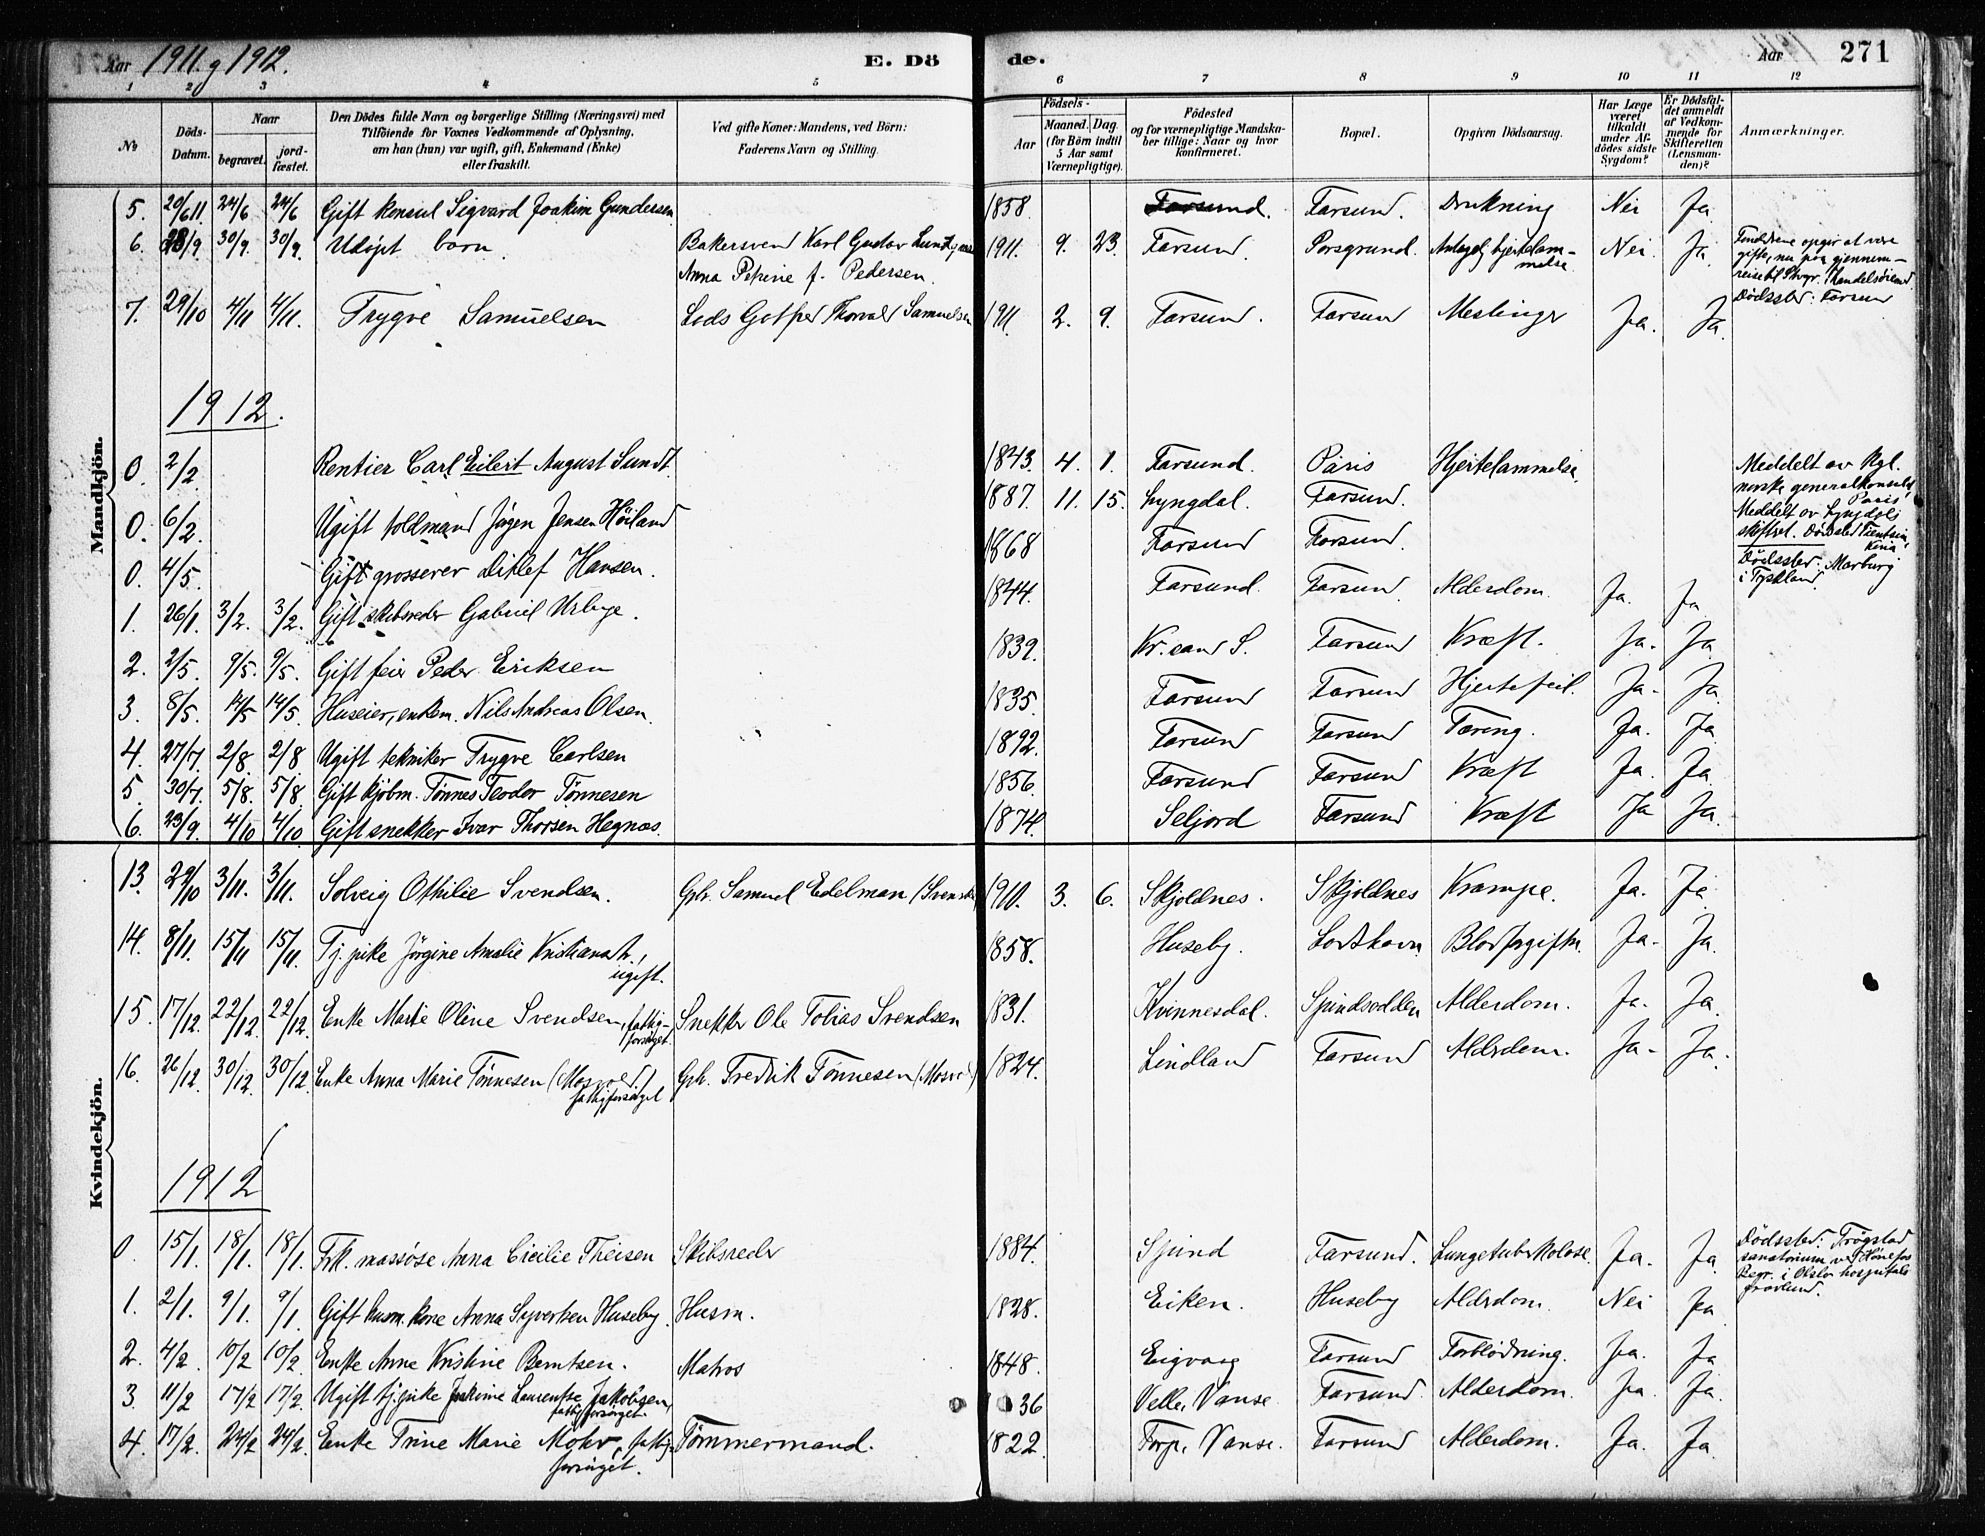 Aar 1911 g 1912. E. Dö de. Aar 271
1 2 3 4 5 6 7 8 9 10 11 12
No
Döds-Datum.
Naar
begravet.
jord-fæstet.
Den Dödes fulde Navn og borgerlige Stilling (Næringsvei) med
Tilföiende for Voxnes Vedkommende af Oplysning,
om han (hun) var ugift, gift, Enkemand (Enke)
eller fraskilt.
Ved gifte Koner: Mandens, ved Börn:
Faderens Navn og Stilling.
Födsels-
Aar
Maaned. Dag.
(for Börn indtil
5 Aar samt
Værnepligtige).
Födested
og for værnepligtige Mandska-
ber tillige: Naar og hvor
konfirmeret.
Bopæl.
Opgiven Dödsaarsag.
Har Læge
været
tilkaldt
under Af-
dödes sidste
Sygdom?
Er Dödsfal-
det anmeldt
af Vedkom-
mende for
Skifteretten
(Lensman-
den)?
Anmærkninger.
Mandkjön.
5. 20/6 11 24/6 24/6 Gift konsul Sigvard Joakim Gundersen 1858. Farsund. Farsund. Drukning Nei Ja
6. 28/9. 30/9. 30/9. Udøpt barn. Bakersvend Karl Gustav 1911. 9. 23. Farsund. Porsgrund. Antagelig hjertelam- Nei. Ja. Forældrene opgir at være
Anna Petrine f. Pedersen. melse gifte, nu paa gjennem-
reise
Dødssted: Farsund
7. 29/10 4/11 4/11. Trygve Samuelsen Lods Gotfred Thorvald Samuelsen 1911. 2. 9. Farsund. Farsund Meslinger Ja. Ja.
1912.
0. 2/2 Rentier Carl Eilert August Sundt. 1843. 4. 1. Farsund. Paris Hjertelammelse Meddelt av Kgl.
norske generalkonsulat
Paris
0. 6/2. Ugift toldmand Jørgen Jensen Höiland 1887. 11. 15. Lyngdal. Farsund. Meddelt av Lyngdals
skifteret. Dødssted Tientsin,
Kina
0. 4/5. Gift grosserer Ditlef Hansen. 1868 Farsund Farsund. Dødssted: Marburg
i Tyskland.
1. 26/1. 3/2. 3/2. Gift skibsreder Gabriel Urbye. 1844. Farsund. Farsund. Alderdom. Ja. Ja
2. 2/5. 9/5. 9/5. Gift feier Peder Eriksen 1839. Kr.sand S. Farsund Kræft. Ja. Ja.
3. 8/5. 14/5 14/5. Huseier, enkem. Nils Andreas Olsen. 1835. Farsund Farsund Hjertefeil. Ja. Ja.
4. 27/7. 2/8. 2/8 Ugift tekniker Trygve Carlsen 1892. Farsund Farsund Tæring. Ja. Ja.
5. 30/7. 5/8. 5/8. Gift kjøbm. Tönnes Teodor Tönnesen 1856. Farsund Farsund Kræft Ja. Ja.
6. 23/9. 4/10 4/10 Gift snekker Ivar Thorsen Hegnæs. 1874. Seljord Farsund Kræft Ja Ja.
Kvindekjön.
13. 29/10 3/11. 3/11. Solveig Othilie Svendsen. Grh. Samuel Edelman Svendsen 1910. 3. 6. Skjoldnes. Skjoldnes Krampe. Ja. Ja
14. 8/11. 15/11 15/11. Tj. pike Jörgine Amalie 1858. Huseby. Loshavn Blodforgiftn. Ja. Ja.
ugift.
15. 17/12. 22/12. 22/12. Enke Marie Oline Svendsen, fattig- Snekker Ole Tobias Svendsen 1831. Kvinnesdal. Spindsodden Alderdom. Ja. Ja.
forsørget.
16. 26/12. 30/12 30/12. Enke Anna Marie Tönnesen (Mosvold) Grh. Fredrik Tönnesen (Mosvold) 1824. Lindland Farsund Alderdom. Ja. Ja.
fattigforsørget
1912
0. 15/1. 18/1. 18/1. Frk. massøse Anna Cicilie Theisen Skibsreder 1884. Spind Farsund. Lungetuberkulose. Ja. Ja. Dødssted: Trøgstad
sanatorium ved Hønefos
Begr. i Oslo hospitals
gravlund.
1. 2/1. 9/1. 9/1 Gift husm. kone Anna Syvertsen Huseby. Husm. 1828. Eiken. Huseby Alderdom. Nei Ja
2. 4/2. 10/2 10/2. Enke Anne Kristine Berntsen. Matros 1848. Eigvaag Farsund Forblödning. Ja. Ja
3. 11/2 17/2 17/2. Ugift tj. pike Joakime Laurentse Jakobsen, 36 Velle, Vanse Farsund. Alderdom. Ja. Ja.
fattigforsørget.
4. 17/2. 24/2 24/2. Enke Trine Marie Mohr, fattig- Tømmermand. 1822. Torp, Vanse. Farsund Alderdom. Ja. Ja.
forsørget.